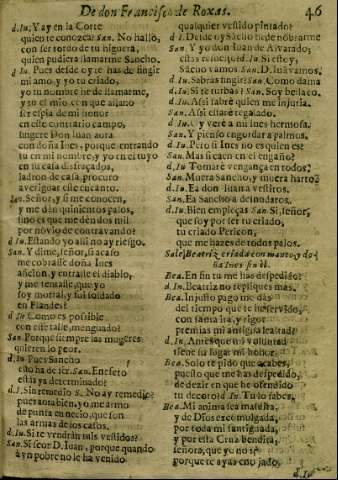 De don Francisco de Roxas. 46
d.Iu. Y ay en la Corte
quien te conozca? San. No hallo,
con ser tordo de tu higuera,
quien pudiera llamarme Sancho.
d.Iu. Pues desde oy te has de fingir
mi amo, y yo tu criado,
yo tu nombre he de llamarme,
y tu el mio con que allano
ser espia de mi honor
en este contrario campo,
fingete Don Iuan aora
con doña Ines, porque entrando
tu en mi nombre, y yo en el tuyo
en tu casa disfraçados,
ladron de casa, procuro
averiguar este encanto.
San. Señor, y si me conocen,
y me dàn quinientos palos,
sino es que me dèn dos mil
por novio de contravando?
d.Iu. Estando yo ahi no ay riesgo.
San. Y dime, señor, si acaso
me cobralle doña Ines
aficion, y entralle el diablo,
y me tentasse, que yo
soy mortal, y fui soldado
en Flandes?
d Iu. Como es possible
con esse talle, menguado?
San. Porque siempre las mugeres
quieren lo peor.
d.Iu. Pues Sancho
esto ha de ser. San. En efeto
estàs ya determinado?
d.I. Sin remedio S. No ay remedio?
pues aora bien, yo me armo
de punta en necio, que son
las armas de los casos.
d.Iu. Si te vendràn mis vestidos?
San. Si señor D. Iuan, porque quando
à vn pobre no le ha venido
qualquier vestido pintado?
d I. Desde oy Sacho he de nobrarme
San. Y yo don Iuan de Alvarado;
d.Iu. Sancho vamos San. D. Iuã vamos.
d.Iu. Sabràs fingir? San. Como dama
d.Iu. Si te turbas? San. Soy bellaco.
d.Iu. Assi sabrè quien me injuria.
San. Assi estarè regalado.
d.Iu. Oy verè a mi Ines hermosa.
San. Y pienso engordar a palmos.
d.Iu. Pero si Ines no es quien es?
San. Mas si caen en el engaño?
d.Iu Tomarè vengança en todos?
San. Muera Sancho, y muera harto?
d.Iu. Ea don Iuan a vestiros.
San. Ea Sancho a desnudaros.
d.Iu. Bien empieças San Si, señor,
que soy por ser tu criado,
tu criado Pericon,
que me hazes de todos palos.
Sale Beatriz criada con manto, y do-
ña Ines sin èl.
Bea. En fin tu me has despedido?
d.In. Beatriz no repliques mas.
Bea. Injusto pago me das
del tiempo que te he servido,
con saña ira, y rigor
premias mi antigua lealtad?
d.In. Antes que mi voluntad
tiene su lugar mi honor.
Bea. Solo te pido que acabes,
puesto que me has despedido,
de dezir en que he ofendido
tu decoro? d.In. Tu lo sabes,
Bea. Mi anima sea maldita,
y de Dios e recomulgada,
por toda mi santiguada,
y por esta Cruz bendita,
señora, que yo no sè
porque te ayas enojado,